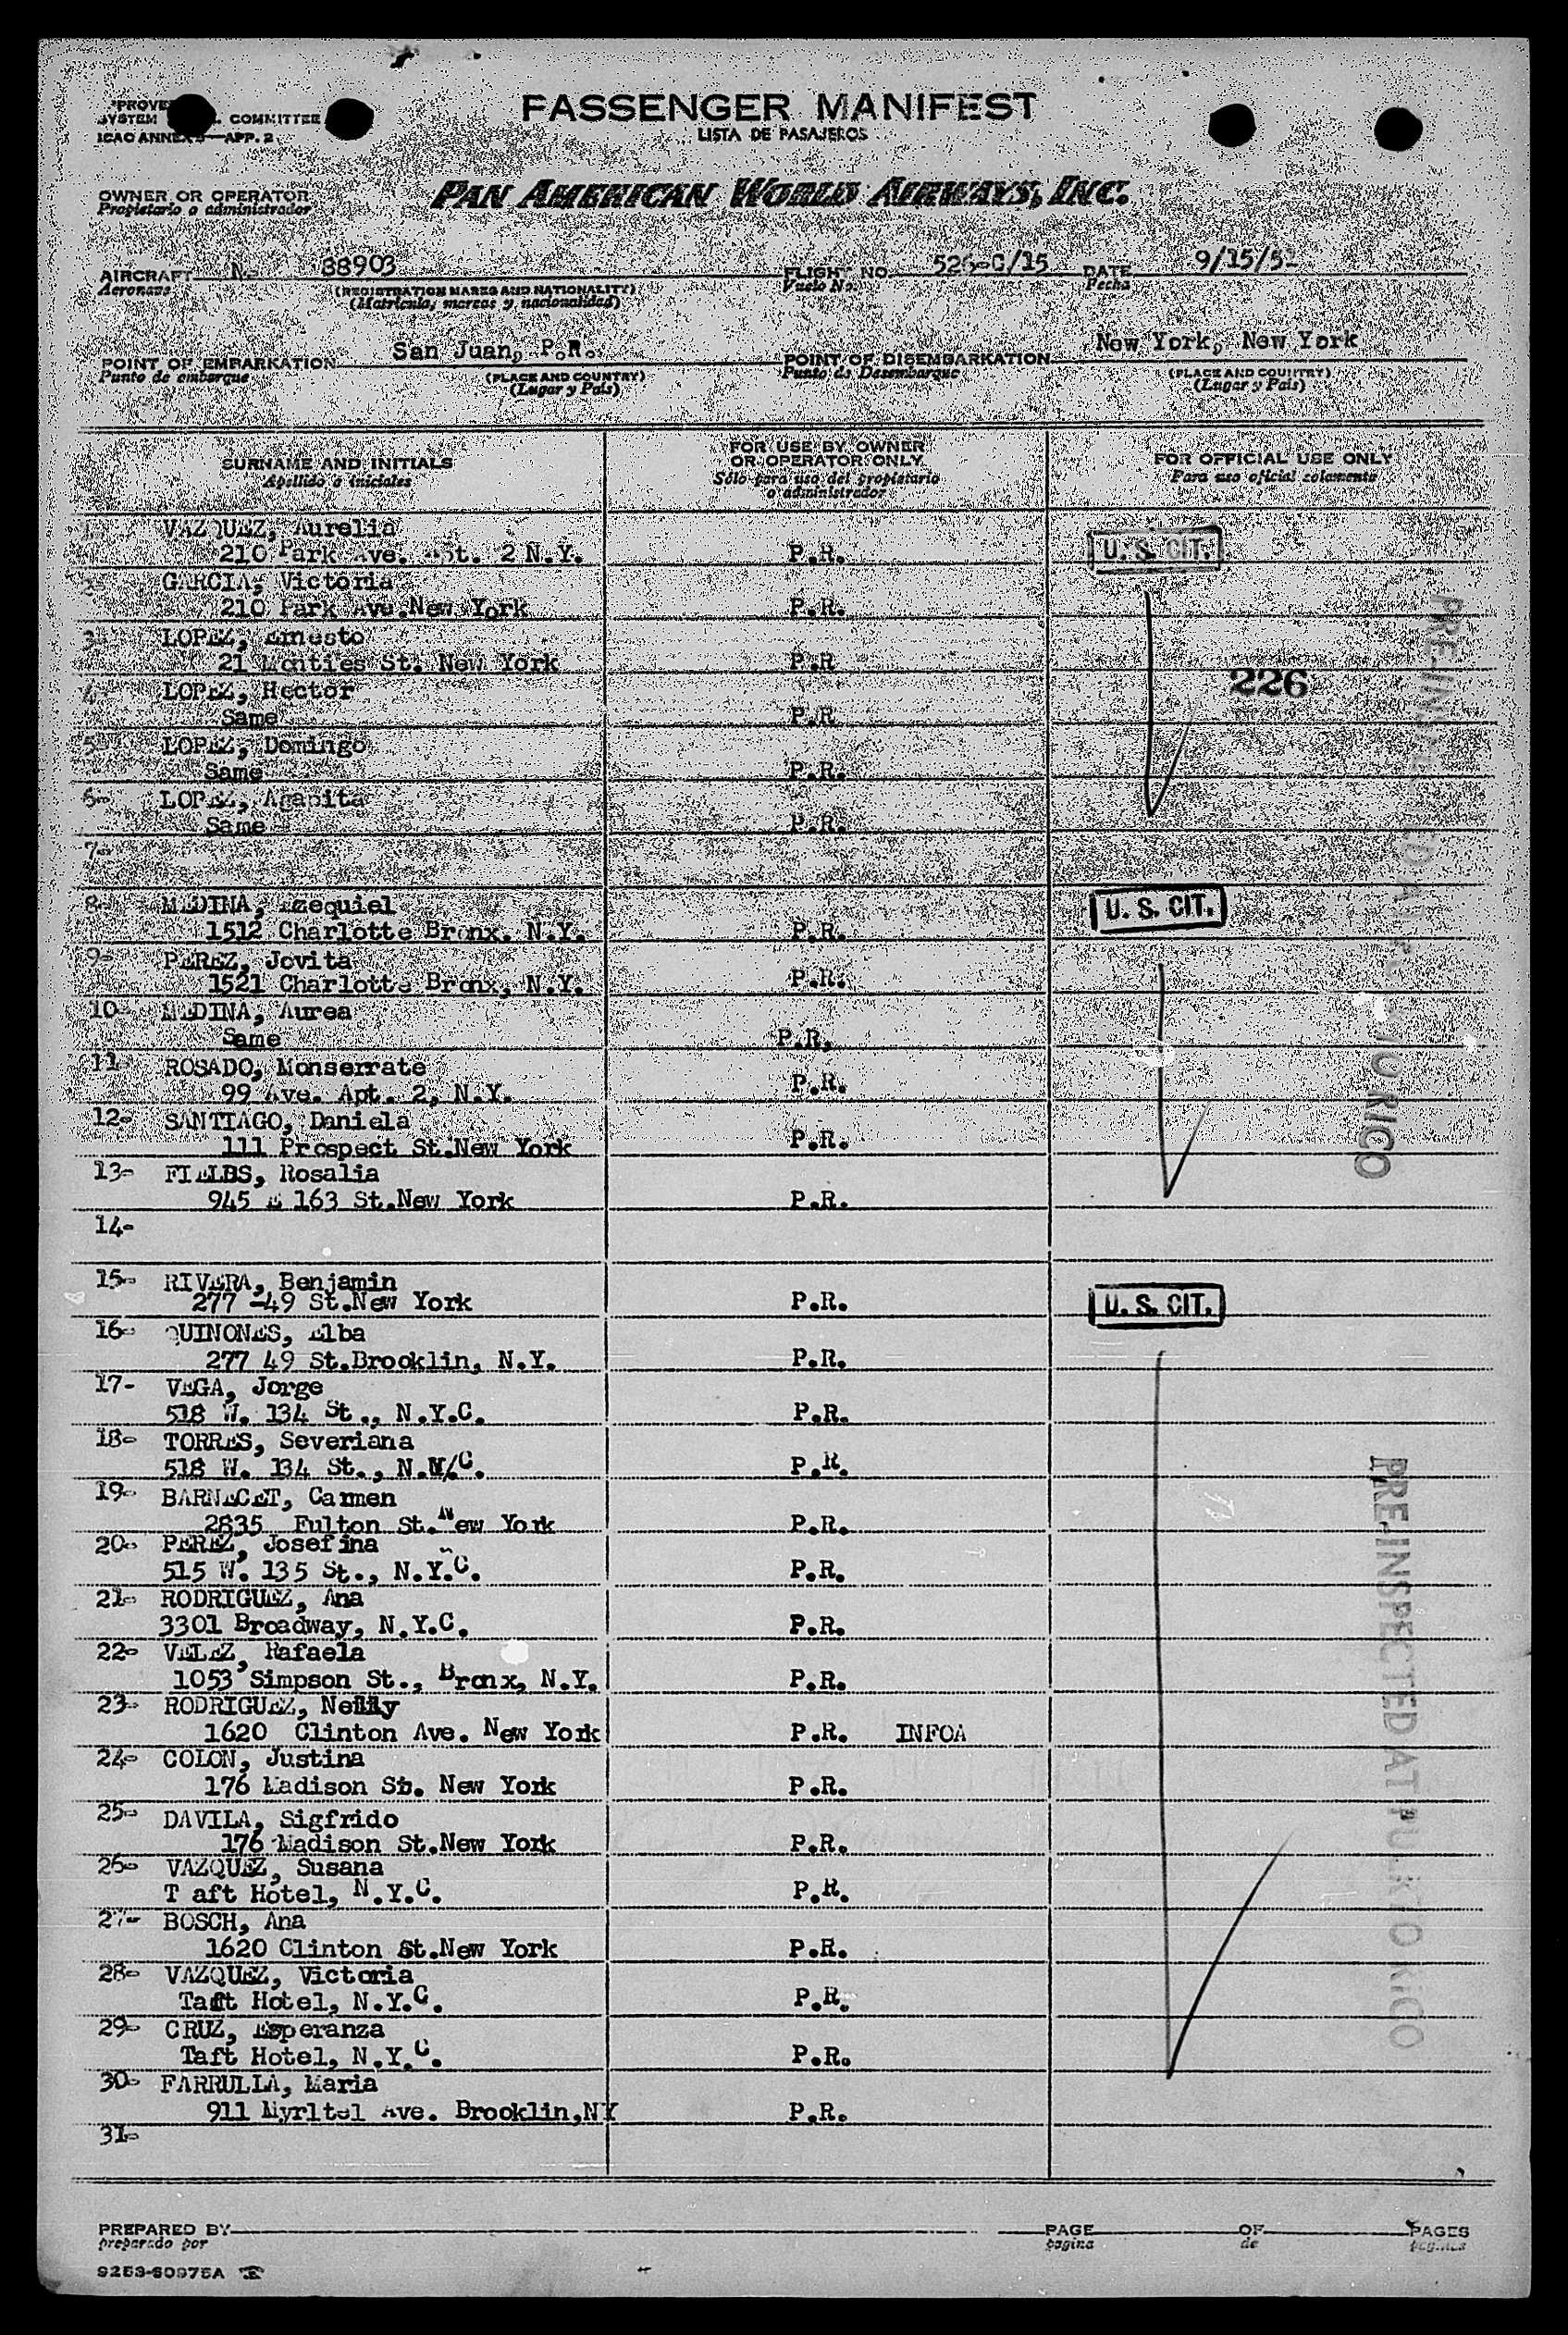 PASSENGER MANIFEST
LISTA DE PASAJEROS
SYSTEM COMMITTEE
ICAO ANNEX APP. 2
OWNER OR OPERATOR
Propietario o administrador
PAN AMERICAN WORLD AIRWAYS, INC.
AIRCRAFT N- 88903 FLIGHT NO. 526-C/15 DATE 9/15/52
Aeronave (REGISTRATION MARKS AND NATIONALITY) Vuelo No. Fecha
(Matricula, marcas y nacionalidad)
POINT OF EMBARKATION San Juan, P.R. POINT OF DISEMBARKATION New York, New York
Punto de embarque (PLACE AND COUNTRY) Punto de Desembarque (PLACE AND COUNTRY)
(Lugar y País) (Lugar y País)
SURNAME AND INITIALS FOR USE BY OWNER OR OPERATOR ONLY FOR OFFICIAL USE ONLY
Apellido e iniciales Sólo para uso del propietario o administrador Para uso oficial solamente
1- VAZQUEZ, Aurelio
210 Park Ave. Apt. 2 N.Y. P.R. U. S. CIT.
2- GARCIA, Victoria
210 Park Ave.New York P.R.
3- LOPEZ, Ernesto
21 Monties St. New York P.R
226
4- LOPEZ, Hector
Same P.R
5- LOPEZ, Domingo
Same P.R.
6- LOPEZ, Agapita
Same P.R.
7-
8- MEDINA, Ezequiel U. S. CIT.
1512 Charlotte Bronx. N.Y. P.R.
9- PEREZ, Jovita
1521 Charlotte Bronx, N.Y. P.R.
10- MEDINA, Aurea
Same P.R.
11- ROSADO, Monserrate
99 Ave. Apt. 2, N.Y. P.R.
12- SANTIAGO, Daniela
111 Prospect St.New York P.R.
13- FIELBS, Rosalia
945 E 163 St.New York P.R.
14-
15- RIVERA, Benjamin
277 -49 St.New York P.R. U. S. CIT.
16- QUINONES, Elba
277 49 St.Brooklin, N.Y. P.R.
17- VEGA, Jorge
518 W. 134 St., N.Y.C. P.R.
18- TORRES, Severiana
518 W. 134 St., N.Y/C. P.R.
19- BARNECET, Carmen
2835 Fulton St.New York P.R.
20- PEREZ, Josefina
515 W. 135 St., N.Y.C. P.R.
21- RODRIGUEZ, Ana
3301 Broadway, N.Y.C. P.R.
22- VELEZ, Rafaela
1053 Simpson St., Bronx, N.Y. P.R.
23- RODRIGUEZ, Nellly
1620 Clinton Ave. New York P.R. INFOA
24- COLON, Justina
176 Madison St. New York P.R.
25- DAVILA, Sigfrido
176 Madison St.New York P.R.
26- VAZQUEZ, Susana
T aft Hotel, N.Y.C. P.R.
27- BOSCH, Ana
1620 Clinton St.New York P.R.
28- VAZQUEZ, Victoria
Taft Hotel, N.Y.C. P.R.
29- CRUZ, Esperanza
Taft Hotel, N.Y.C. P.R.
30- FARRULLA, Maria
911 Myrltel Ave. Brooklin,NY P.R.
31-
PRE-INSPECTED AT PUERTO RICO
PRE-INSPECTED AT PUERTO RICO
PREPARED BY PAGE OF PAGES
preparado por pagina de paginas
9253-60975A